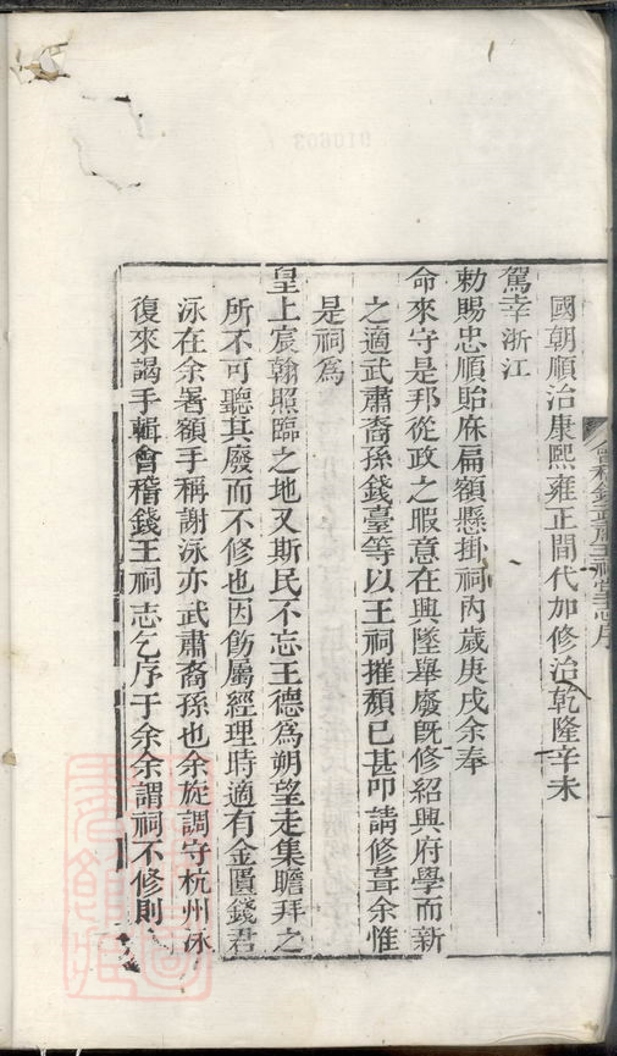 會稽錢武肅王祠堂志序
國朝順治康熙雍正間代加修治乾隆辛未
駕幸浙江
勅賜忠順貽庥扁額懸掛祠內歲庚戌余奉
命來守是邦從政之暇意在興墜舉廢既修紹興府學而新
之適武肅裔孫錢臺等以王祠摧頹已甚叩請修葺余惟
是祠爲
皇上宸翰照臨之地又斯民不忘王德爲朔望走集瞻拜之
所不可聽其廢而不修也因飭屬經理時適有金匱錢君
泳在余署額手稱謝泳亦武肅裔孫也余旋調守杭州泳
復來謁手輯會稽錢王祠志乞序于余余謂祠不修則